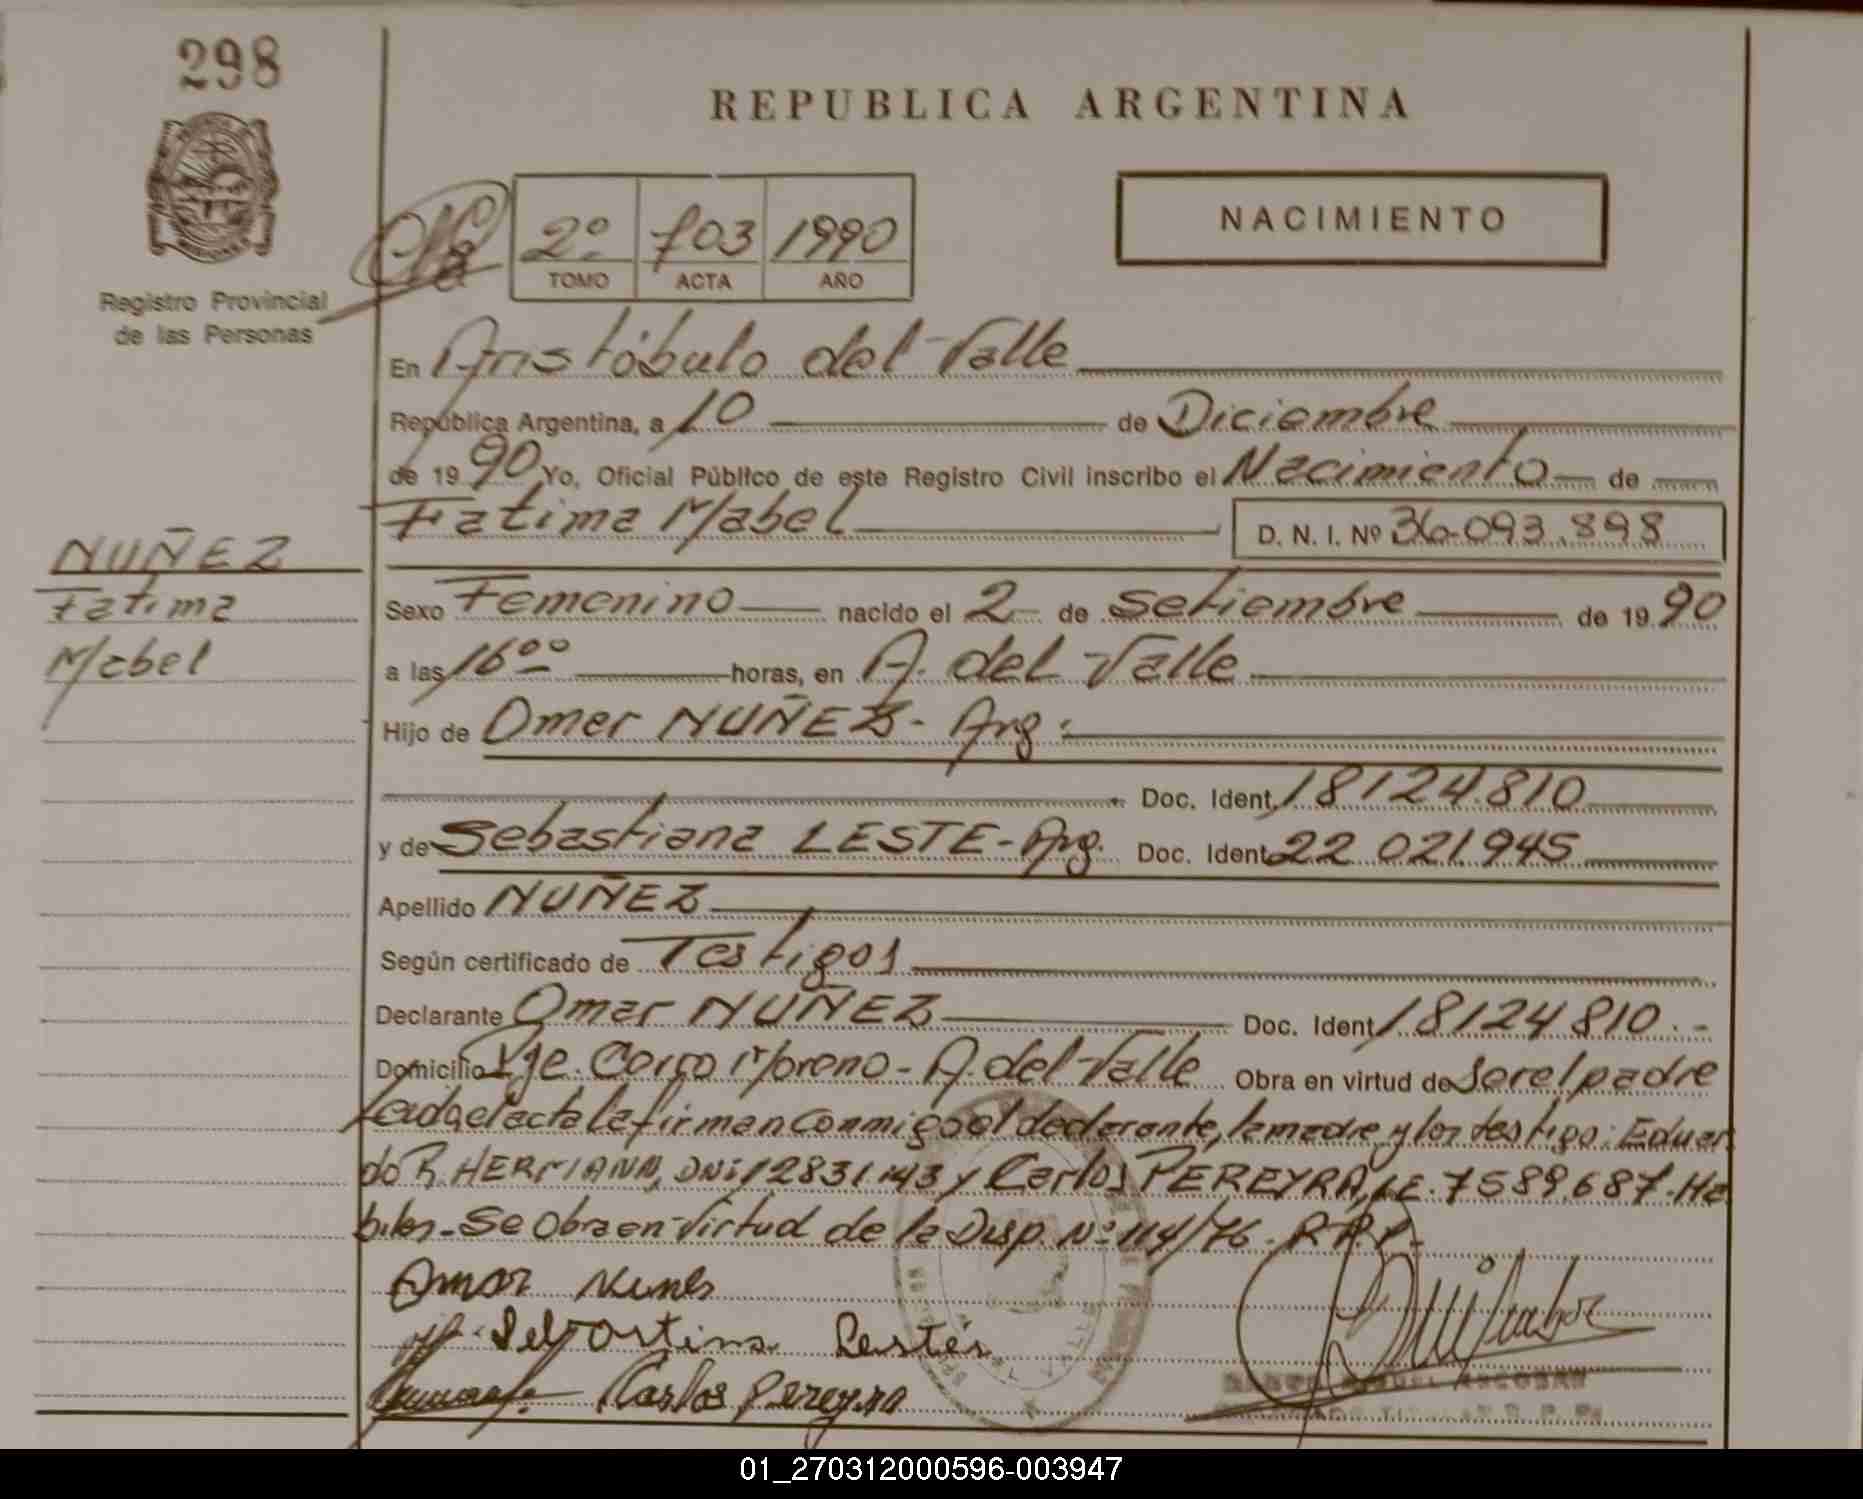 298
REPUBLICA ARGENTINA
NACIMIENTO
2º 703 1990
TOMO ACTA AÑO
Registro Provincial
de las Personas
En Aristóbulo del Valle
República Argentina, a 10 de Diciembre
de 1990 Yo, Oficial Público de este Registro Civil inscribo el Nacimiento de
Fatima Mabel D. N. I. Nº 36.093.898
NUÑEZ
Fatima
Mabel
Sexo Femenino nacido el 2 de Setiembre de 1990
a las 16ºº horas, en A. del Valle
Hijo de Omar NUÑEZ - Arg.
Doc. Ident. 18124.810
y de Sebastiana LESTE - Arg. Doc. Ident. 22 021.945
Apellido NUÑEZ
Según certificado de Testigos
Declarante Omar NUÑEZ Doc. Ident. 18124810.-
Domicilio Pje. Cerro Moreno - A. del Valle Obra en virtud de Ser el padre
Leida el acta la firman conmigo el declarante, la madre y los testigo: Eduar
do R. HERMANN, DNI 12831143 y Carlos PEREYRA, LE. 7589.687. Ha
biles - Se obra en virtud de la Disp. Nº 114/76. R.P.P.-
Omar Nunes
Sebastiana Lestes
Carlos Pereyra
01_270312000596-003947